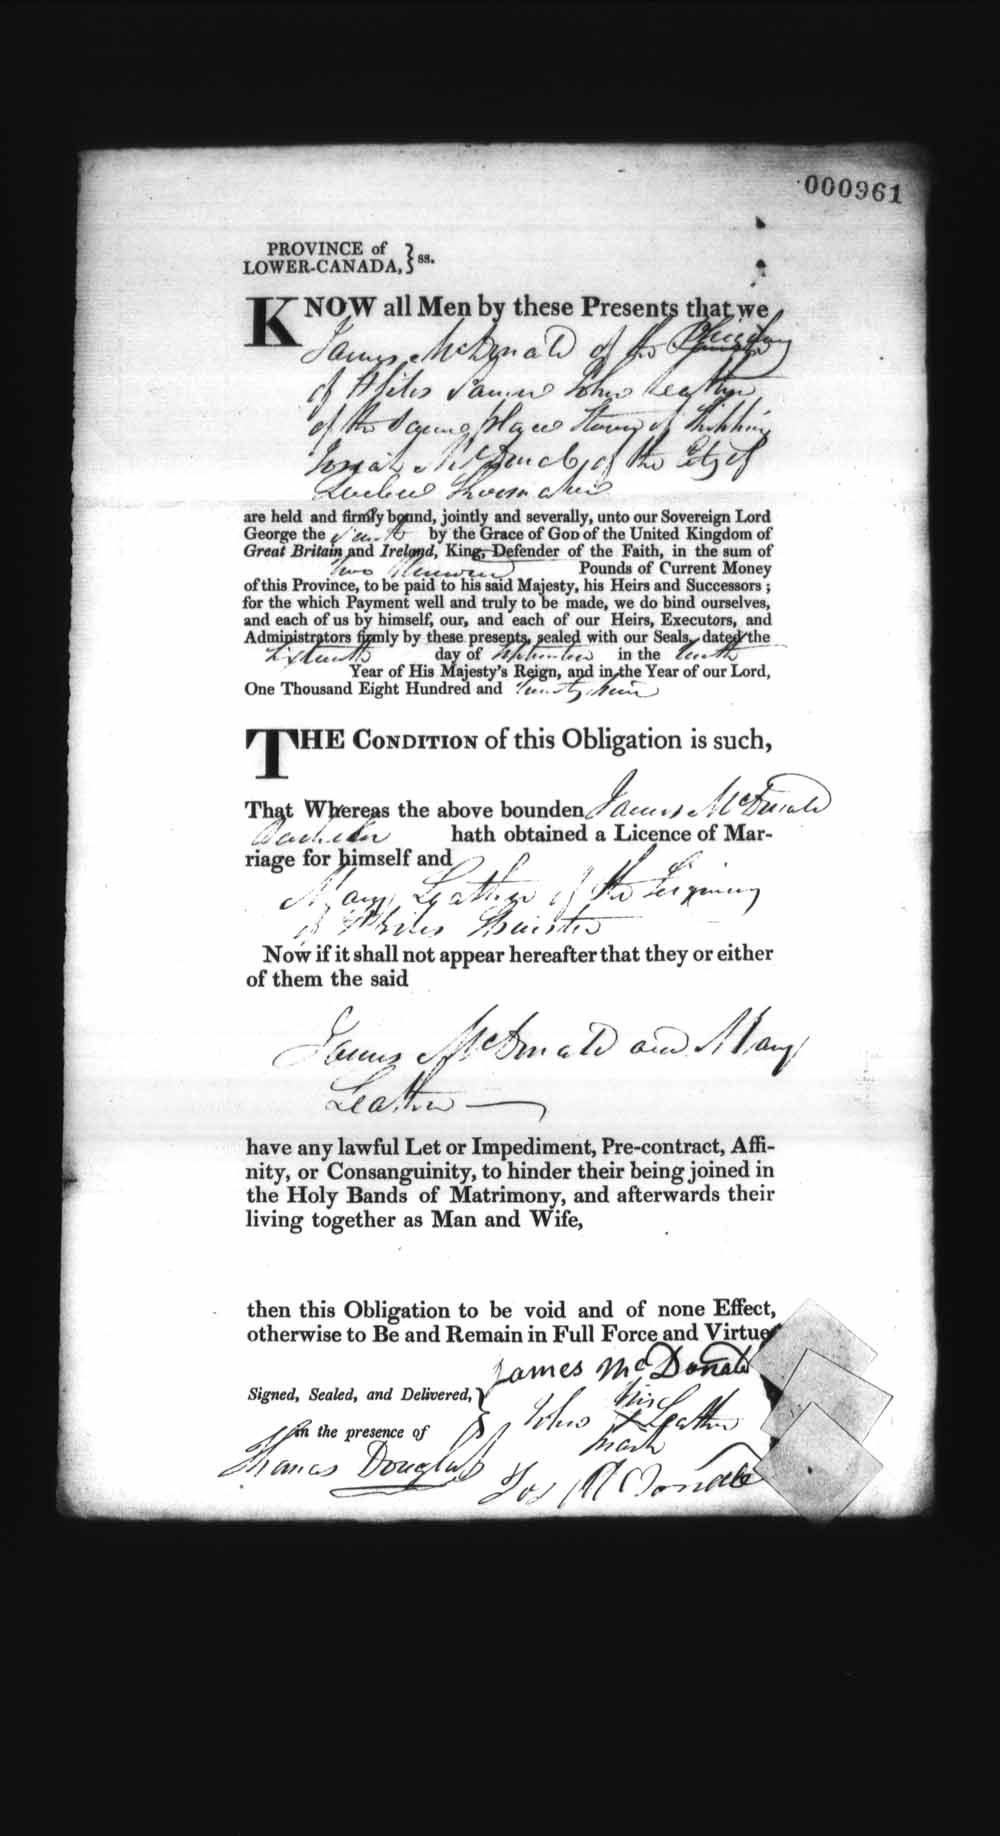 000961
PROVINCE of
LOWER-CANADA, } ss.
KNOW all Men by these Presents that we
James McDonald of the
of St Giles Farmer John Leather
of the Same place
Josiah McDonald of the City of
Quebec Shoemaker
are held and firmly bound, jointly and severally, unto our Sovereign Lord
George the Fourth by the Grace of GOD of the United Kingdom of
Great Britain and Ireland, King, Defender of the Faith, in the sum of
Two Hundred Pounds of Current Money
of this Province, to be paid to his said Majesty, his Heirs and Successors ;
for the which Payment well and truly to be made, we do bind ourselves,
and each of us by himself, our, and each of our Heirs, Executors, and
Administrators firmly by these presents, sealed with our Seals, dated the
Sixteenth day of September in the tenth
Year of His Majesty's Reign, and in the Year of our Lord,
One Thousand Eight Hundred and Twenty nine
THE CONDITION of this Obligation is such,
That Whereas the above bounden James McDonald
Bachelor hath obtained a Licence of Mar-
riage for himself and
Mary Leather of the Seigniory
of St Giles Spinster
Now if it shall not appear hereafter that they or either
of them the said
James McDonald and Mary
Leather
have any lawful Let or Impediment, Pre-contract, Affi-
nity, or Consanguinity, to hinder their being joined in
the Holy Bands of Matrimony, and afterwards their
living together as Man and Wife,
then this Obligation to be void and of none Effect,
otherwise to Be and Remain in Full Force and Virtue
James McDonald
Signed, Sealed, and Delivered, }
his
John X Leather
mark
in the presence of
Thomas Douglas
Jos McDonald